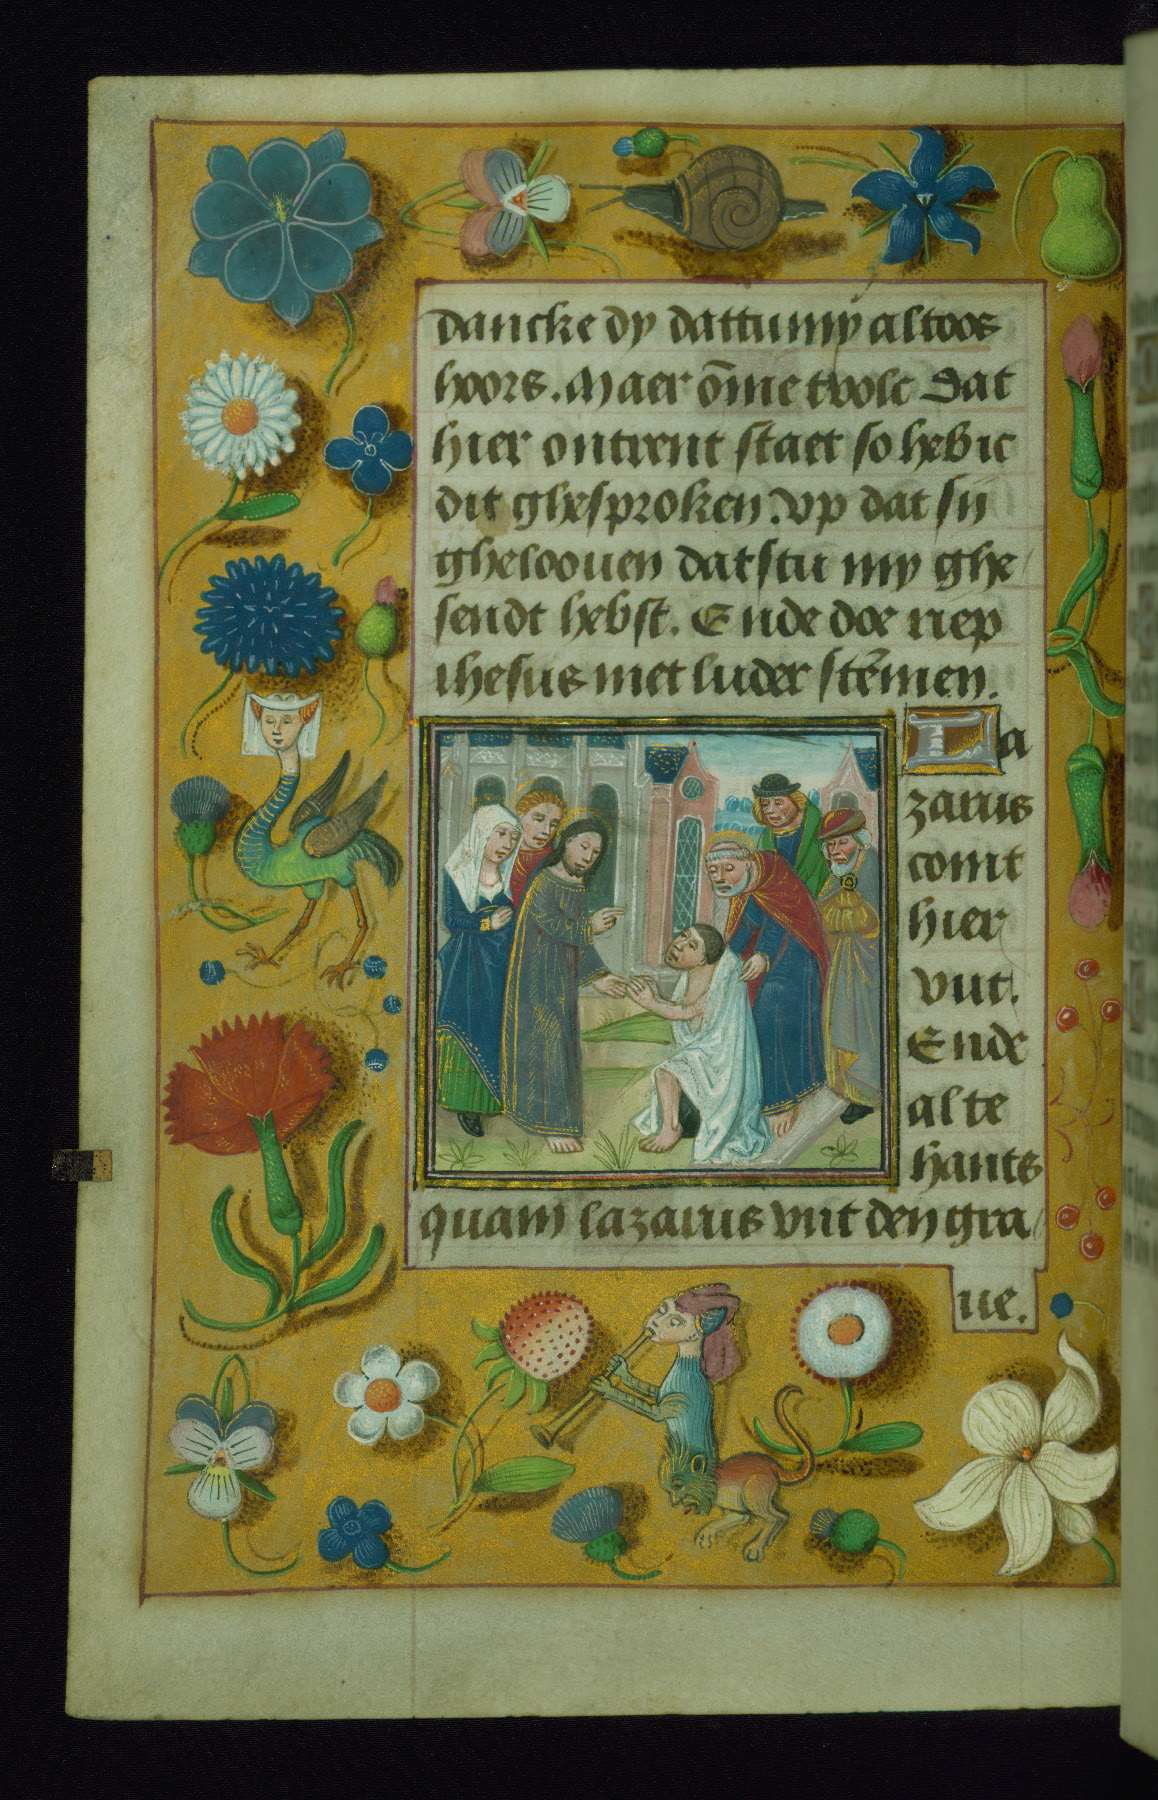 dancke dy dattu my altoos
hoors. Maer ōme tvolc dat
hier ontrent staet so heb ic
dit ghesproken. Vp dat sij
ghelooven datstu my ghe
sendt hebst. Ende doe riep
ihesus met luder stēmen.
La
zarus
comt
hier
vut.
Ende
alte
hants
quam lazarus vut den gra
ue.